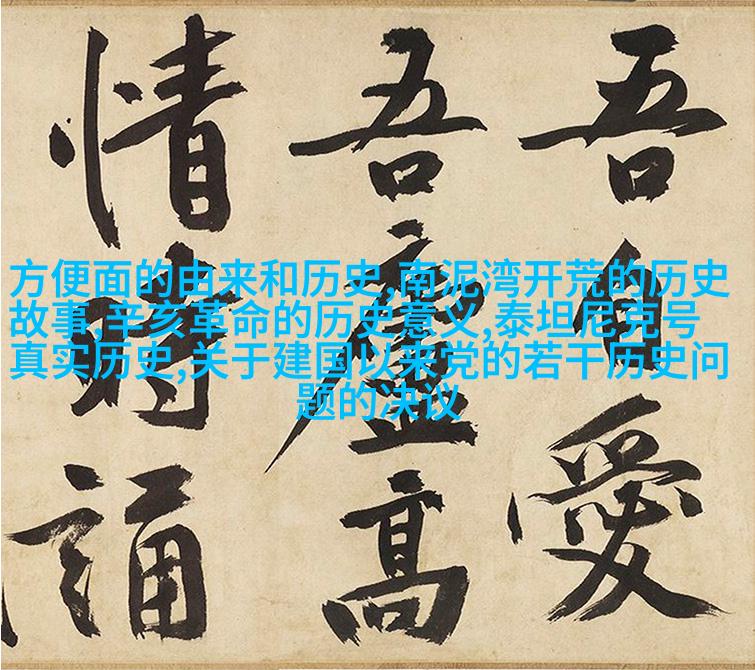 吾自愛
吾廬高
情時誦
方便面的由来和历史,南泥湾开荒的历史
故事,辛亥革命的历史意义,泰坦尼克号
真实历史,关于建国以来党的若干历史问
题的决议